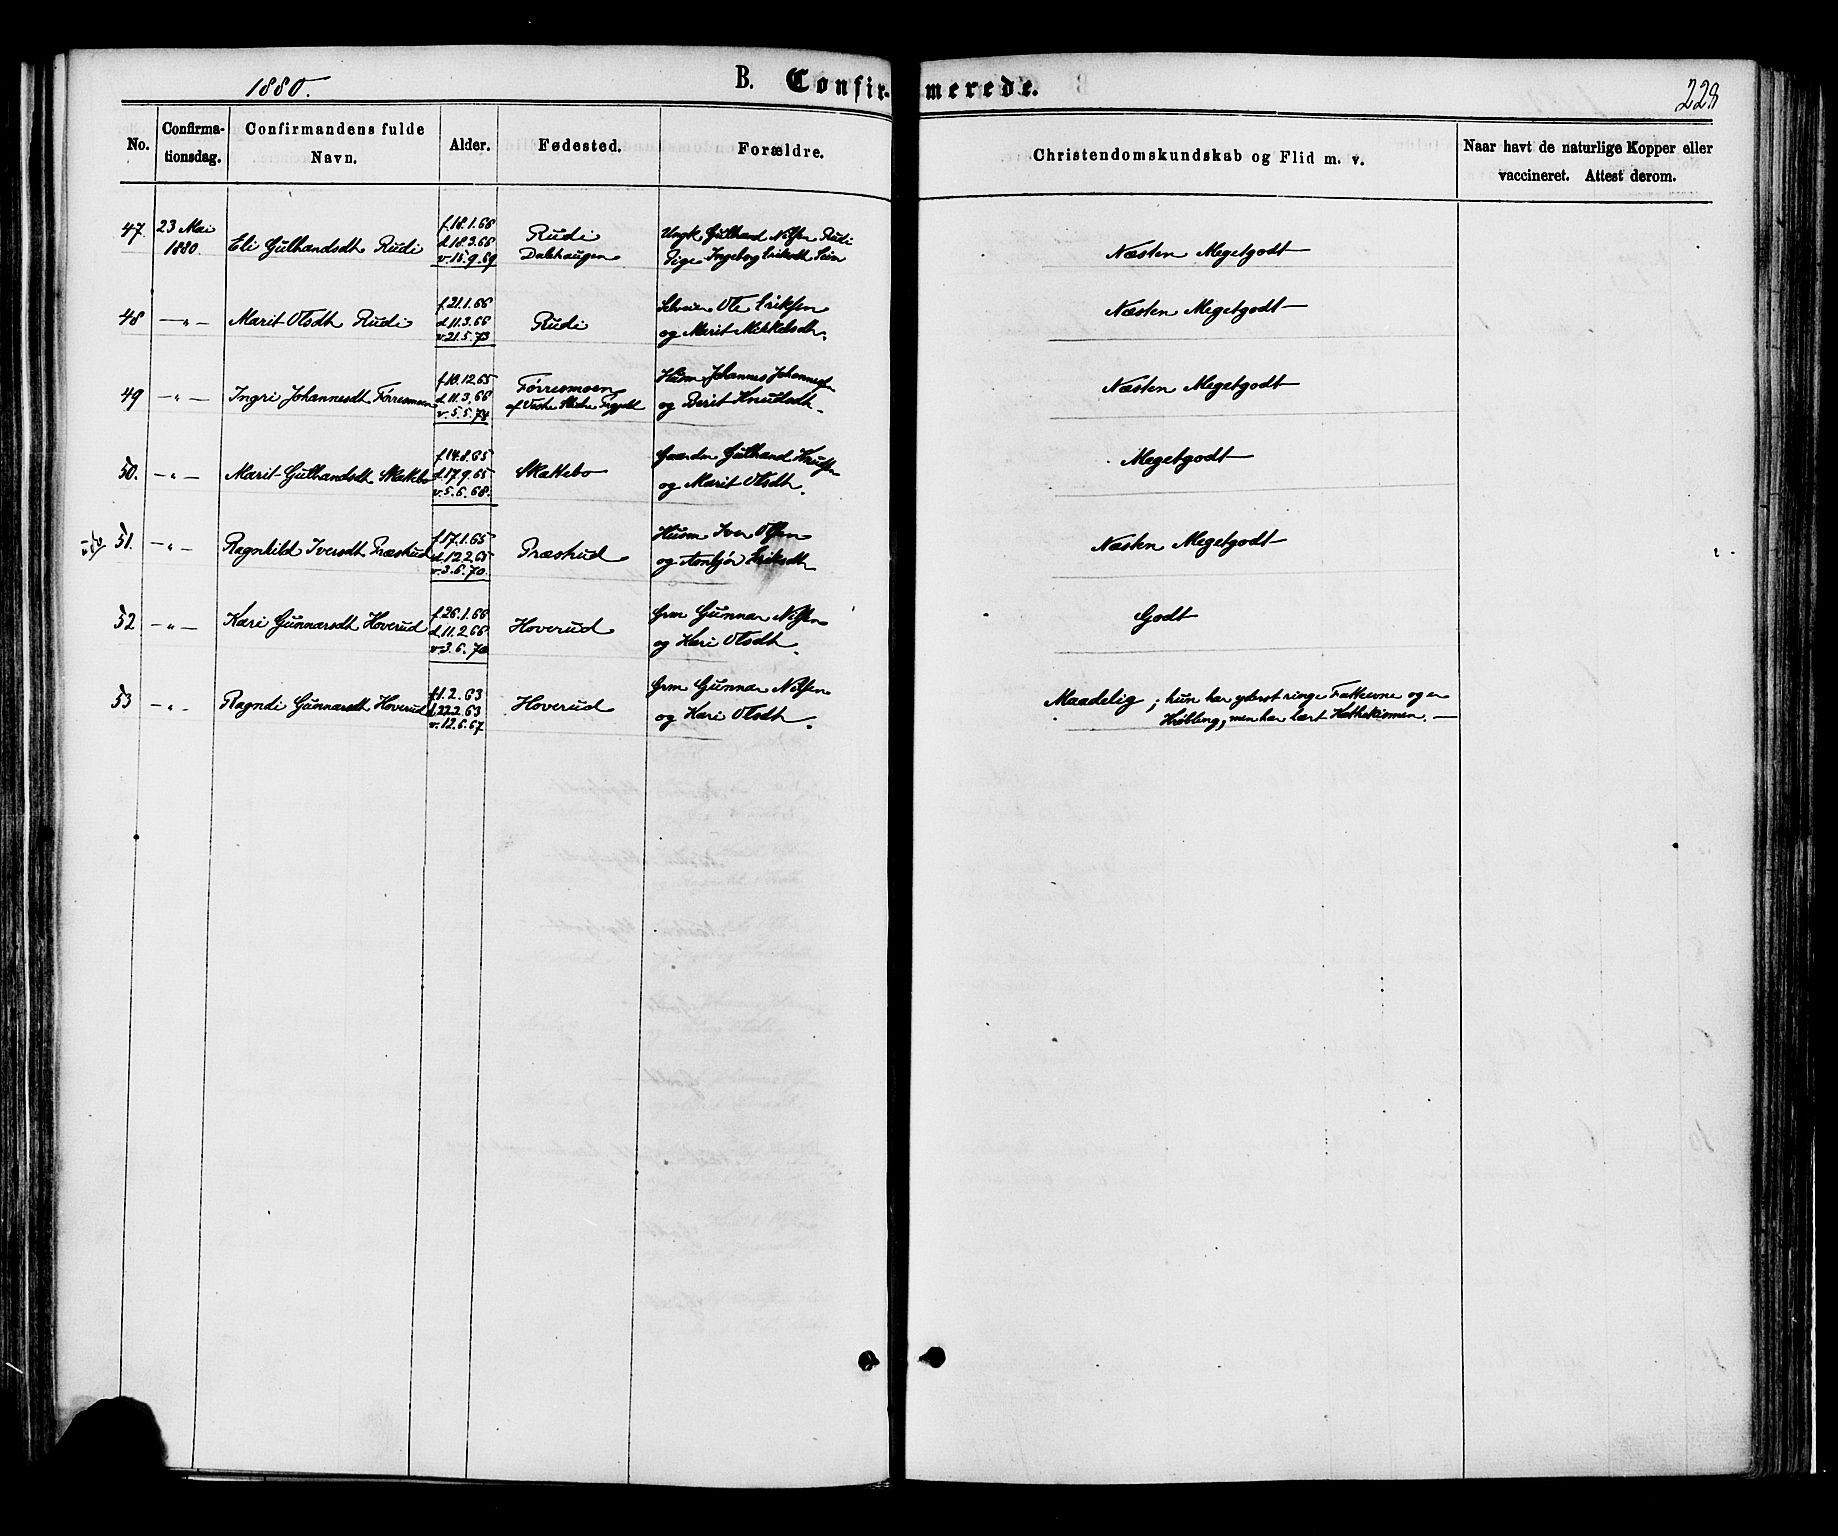 1880.
B. Confirmerede.
228
No.
Confirma-
tionsdag.
Confirmandens fulde
Navn.
Alder.
Fødested.
Forældre.
Christendomskundskab og Flid m. v.
Naar havt de naturlige Kopper eller
vaccineret. Attest derom.
47. 23 Mai
1880.
Eli Gulbrandsdt Rudi
f. 16.1.66
d. 18.3.66
v. 15.9.69
Rudi
Dalshaugen
Ungk Gulbrand Nilsen Rudi
Pige Ingeborg Eriksdt
Næsten Megetgodt
48 —„—
Marit Olsdt Rudi
f. 21.1.66
d. 11.3.66
v. 21.5.73
Rudi
Ole Eriksen
og Marit Mikkelsdt.
Næsten Megetgodt
49 —„—
Ingri Johannesdt Førresmoen
f. 10.12.65
d. 11.3.66
v. 5.5.74
Førresmoen
af Vestre Slidre
Husm Johannes Johannesen
og Berit Knudsdt.
Næsten Megetgodt
50. —„—
Marit Gulbrandsdt Skattebo
f. 14.8.65
d. 17.9.65
v. 5.6.68.
Skattebo
Gaardm Gulbrand Knutsen
og Marit Olsdt.
Megetgodt
51. —„—
Ragnhild Iversdt Præsthud
f. 17.1.65
d. 12.2.65
v. 3.6.70.
Præsthud
Husm Iver Olsen
og Anbjør Eriksdt
Næsten Megetgodt
52 —„—
Kari Gunnarsdt Hoverud
f. 26.1.66
d. 11.2.66
v. 3.6.70
Hoverud
Grm Gunnar Nilsen
og Kari Olsdt.
Godt
53 —„—
Ragndi Gunnarsdt Hoverud
f. 1.2.63
d. 22.2.63
v. 12.6.67
Hoverud
Grm Gunnar Nilsen
og Kari Olsdt.
Maadelig; hun har yderst ringe Fatteevne og er
Krøbling, men har lært Kathekismen. —